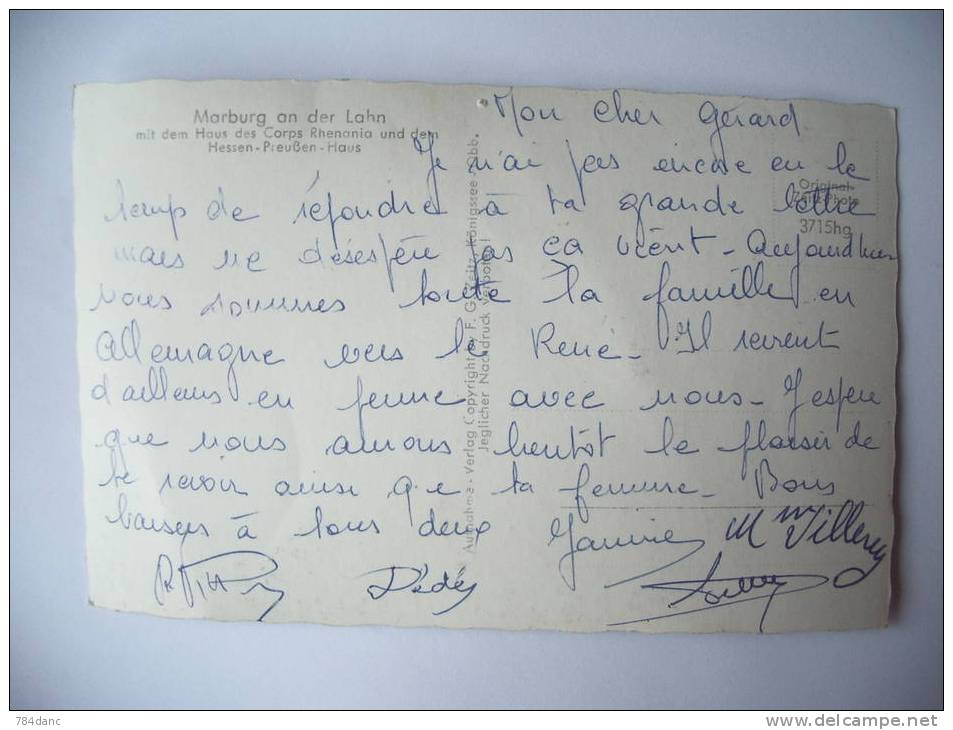 Marburg an der Lahn
mit dem Haus des Corps Rhenania und dem
Hessen-Preußen-Haus
Original-
Zeitz-Photo
3715hg
Aufnahme - Verlag Copyright by F. G. Zeitz, Königssee Obb.
Jeglicher Nachdruck verboten!
Mon cher Gérard
Je n'ai pas encore eu le
temp de répondre à ta grande lettre
mais ne désespère pas ça vient - Aujourd'hui
nous sommes toute la famille en
Allemagne vers le René - Il revient
d'ailleurs en ferme avec nous - J'espère
que nous aurons bientôt le plaisir de
te revoir ainsi que ta femme - Bons
baisers à tous deux Janine Mm Villerey
Dédé
784danc
www.delcampe.net